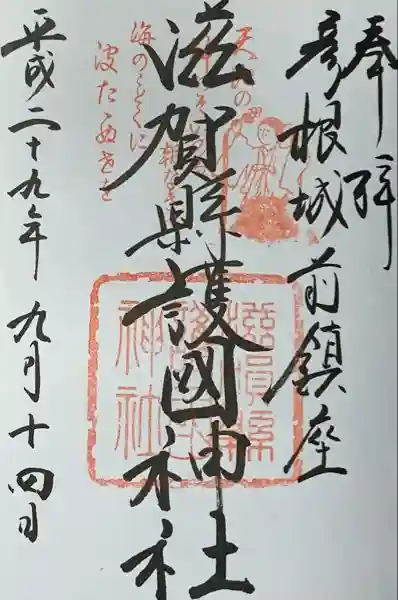 奉拝
彦根城前鎮座
滋賀縣護國神社
平成二十九年九月十四日
滋賀縣
護國
神社
海のもくに
波たゝぬ